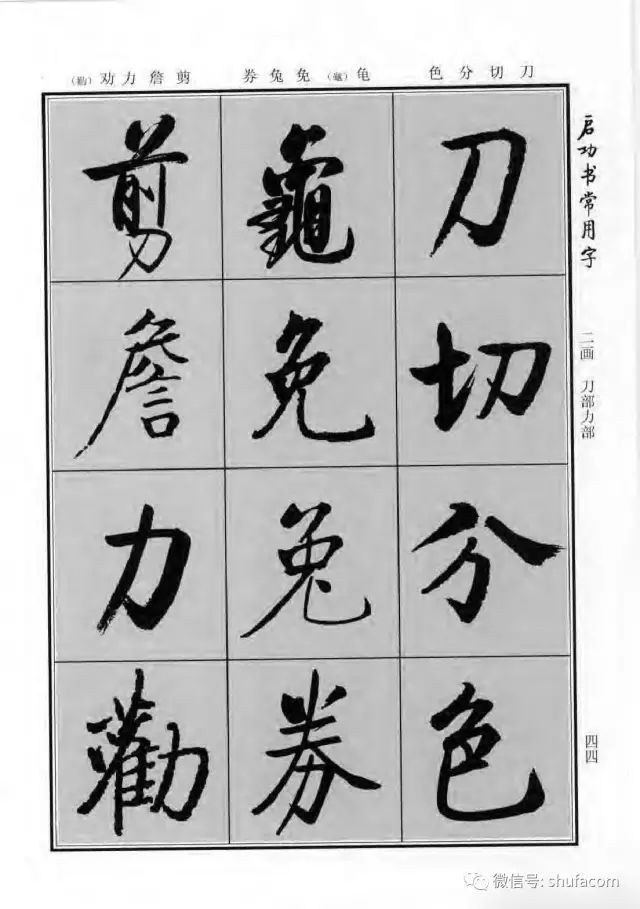 刀切分色 龟(龜)免兔券 剪詹力劝(勸)
启功书常用字
二画 刀部力部
四四
刀
切
分
色
龜
免
兔
券
剪
詹
力
勸
微信号: shufacom